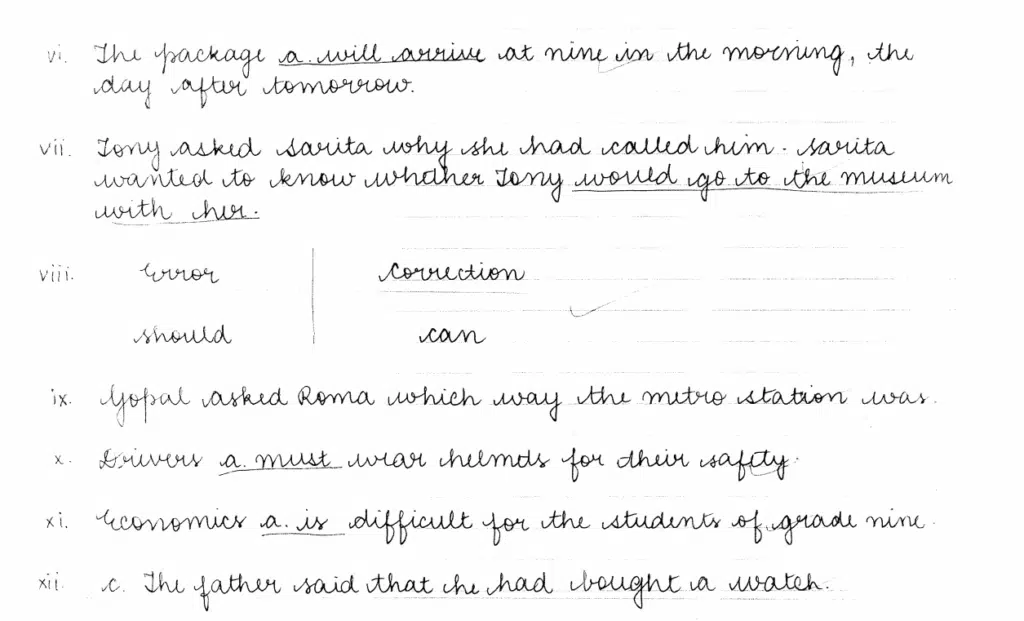 vi. The package a. will arrive at nine in the morning, the
day after tomorrow.
vii. Tony asked Sarita why she had called him. Sarita
wanted to know whether Tony would go to the museum
with her.
viii. Error Correction
should can
ix. Gopal asked Roma which way the metro station was.
x. Drivers a. must wear helmets for their safety.
xi. Economics a. is difficult for the students of grade nine.
xii. c. The father said that he had bought a watch.